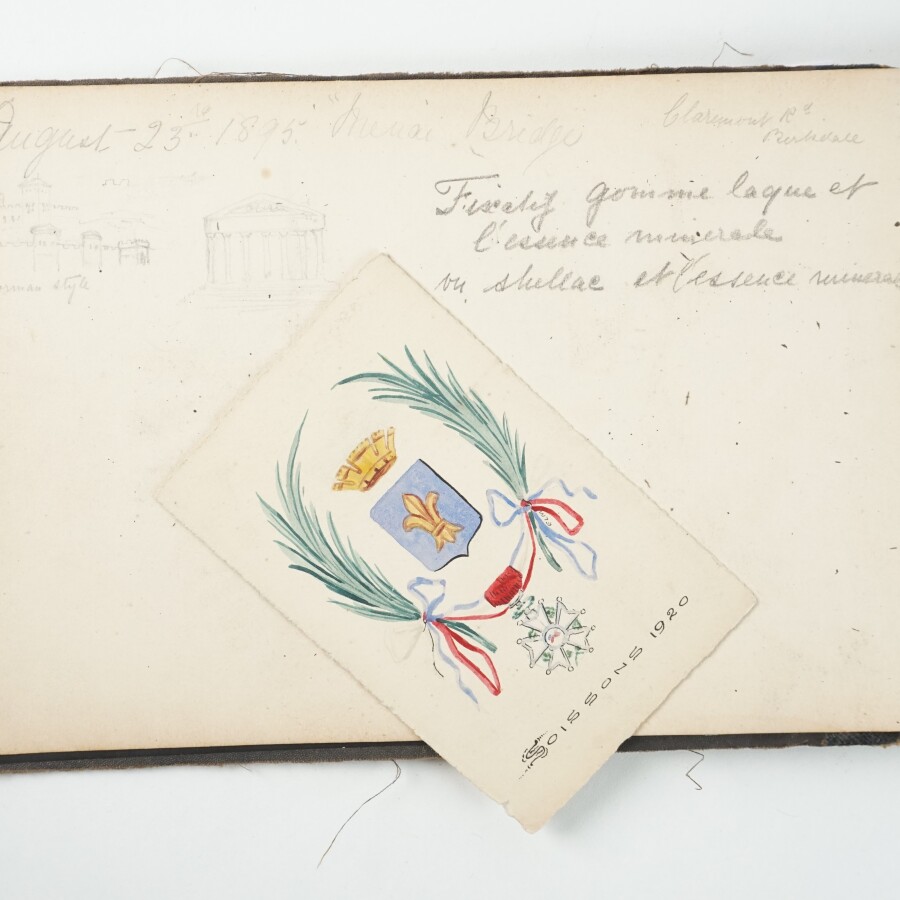 August 23rd 1895. "Menai Bridge
Claremont Rd
Birkdale
Fixatif gomme laque et
l'essence minerale
ou shellac et l'essence minerale
orman style
SOISSONS 1920